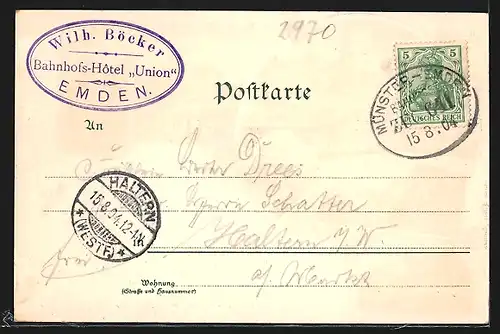 2970
Wilh. Böcker
Bahnhofs-Hôtel „Union“
EMDEN.
Postkarte
5 5
DEUTSCHES REICH
MÜNSTER-EMDEN
15 8. 04
An
Drees
HALTERN
15.8.04.12-1N.
* (WESTF) *
Schatter
Haltern i/W.
frei
a/ Markt
Wohnung
(Straße und Hausnummer)